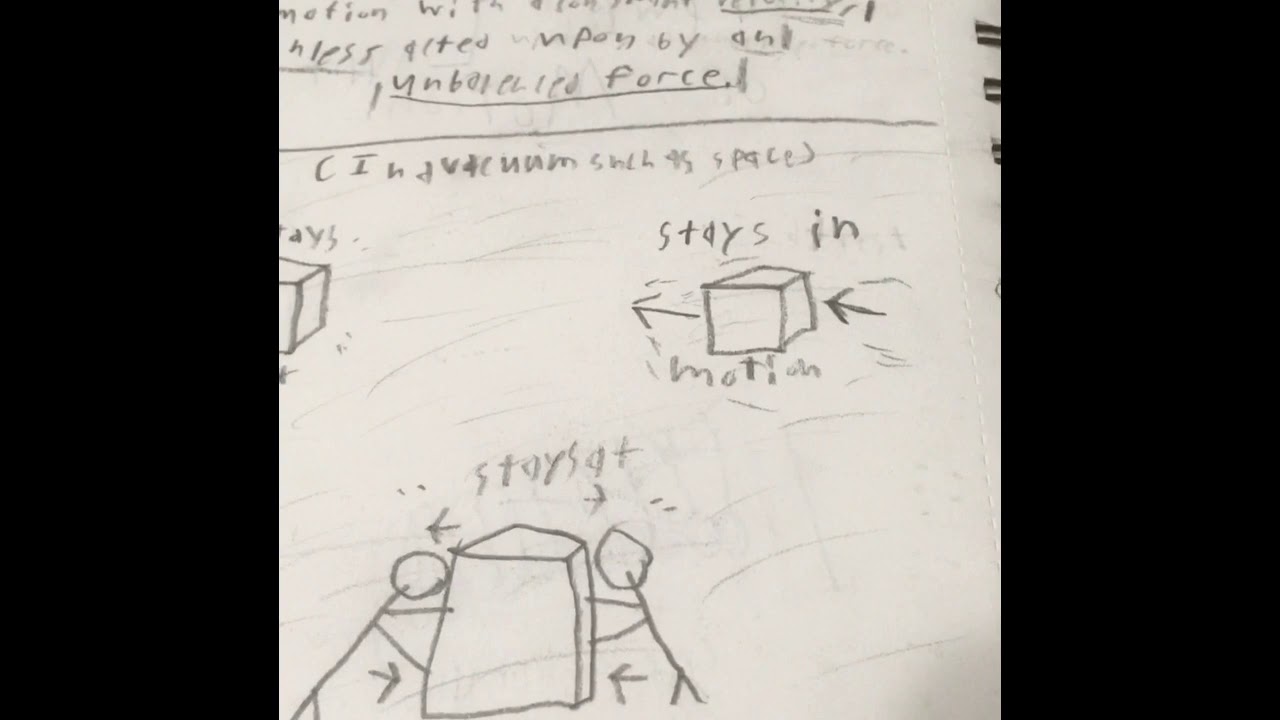 motion with a constant velocity,
nless acted upon by an
unbalenced force.
(In a vacuum such as space)
tays
stays in
motion
stays at